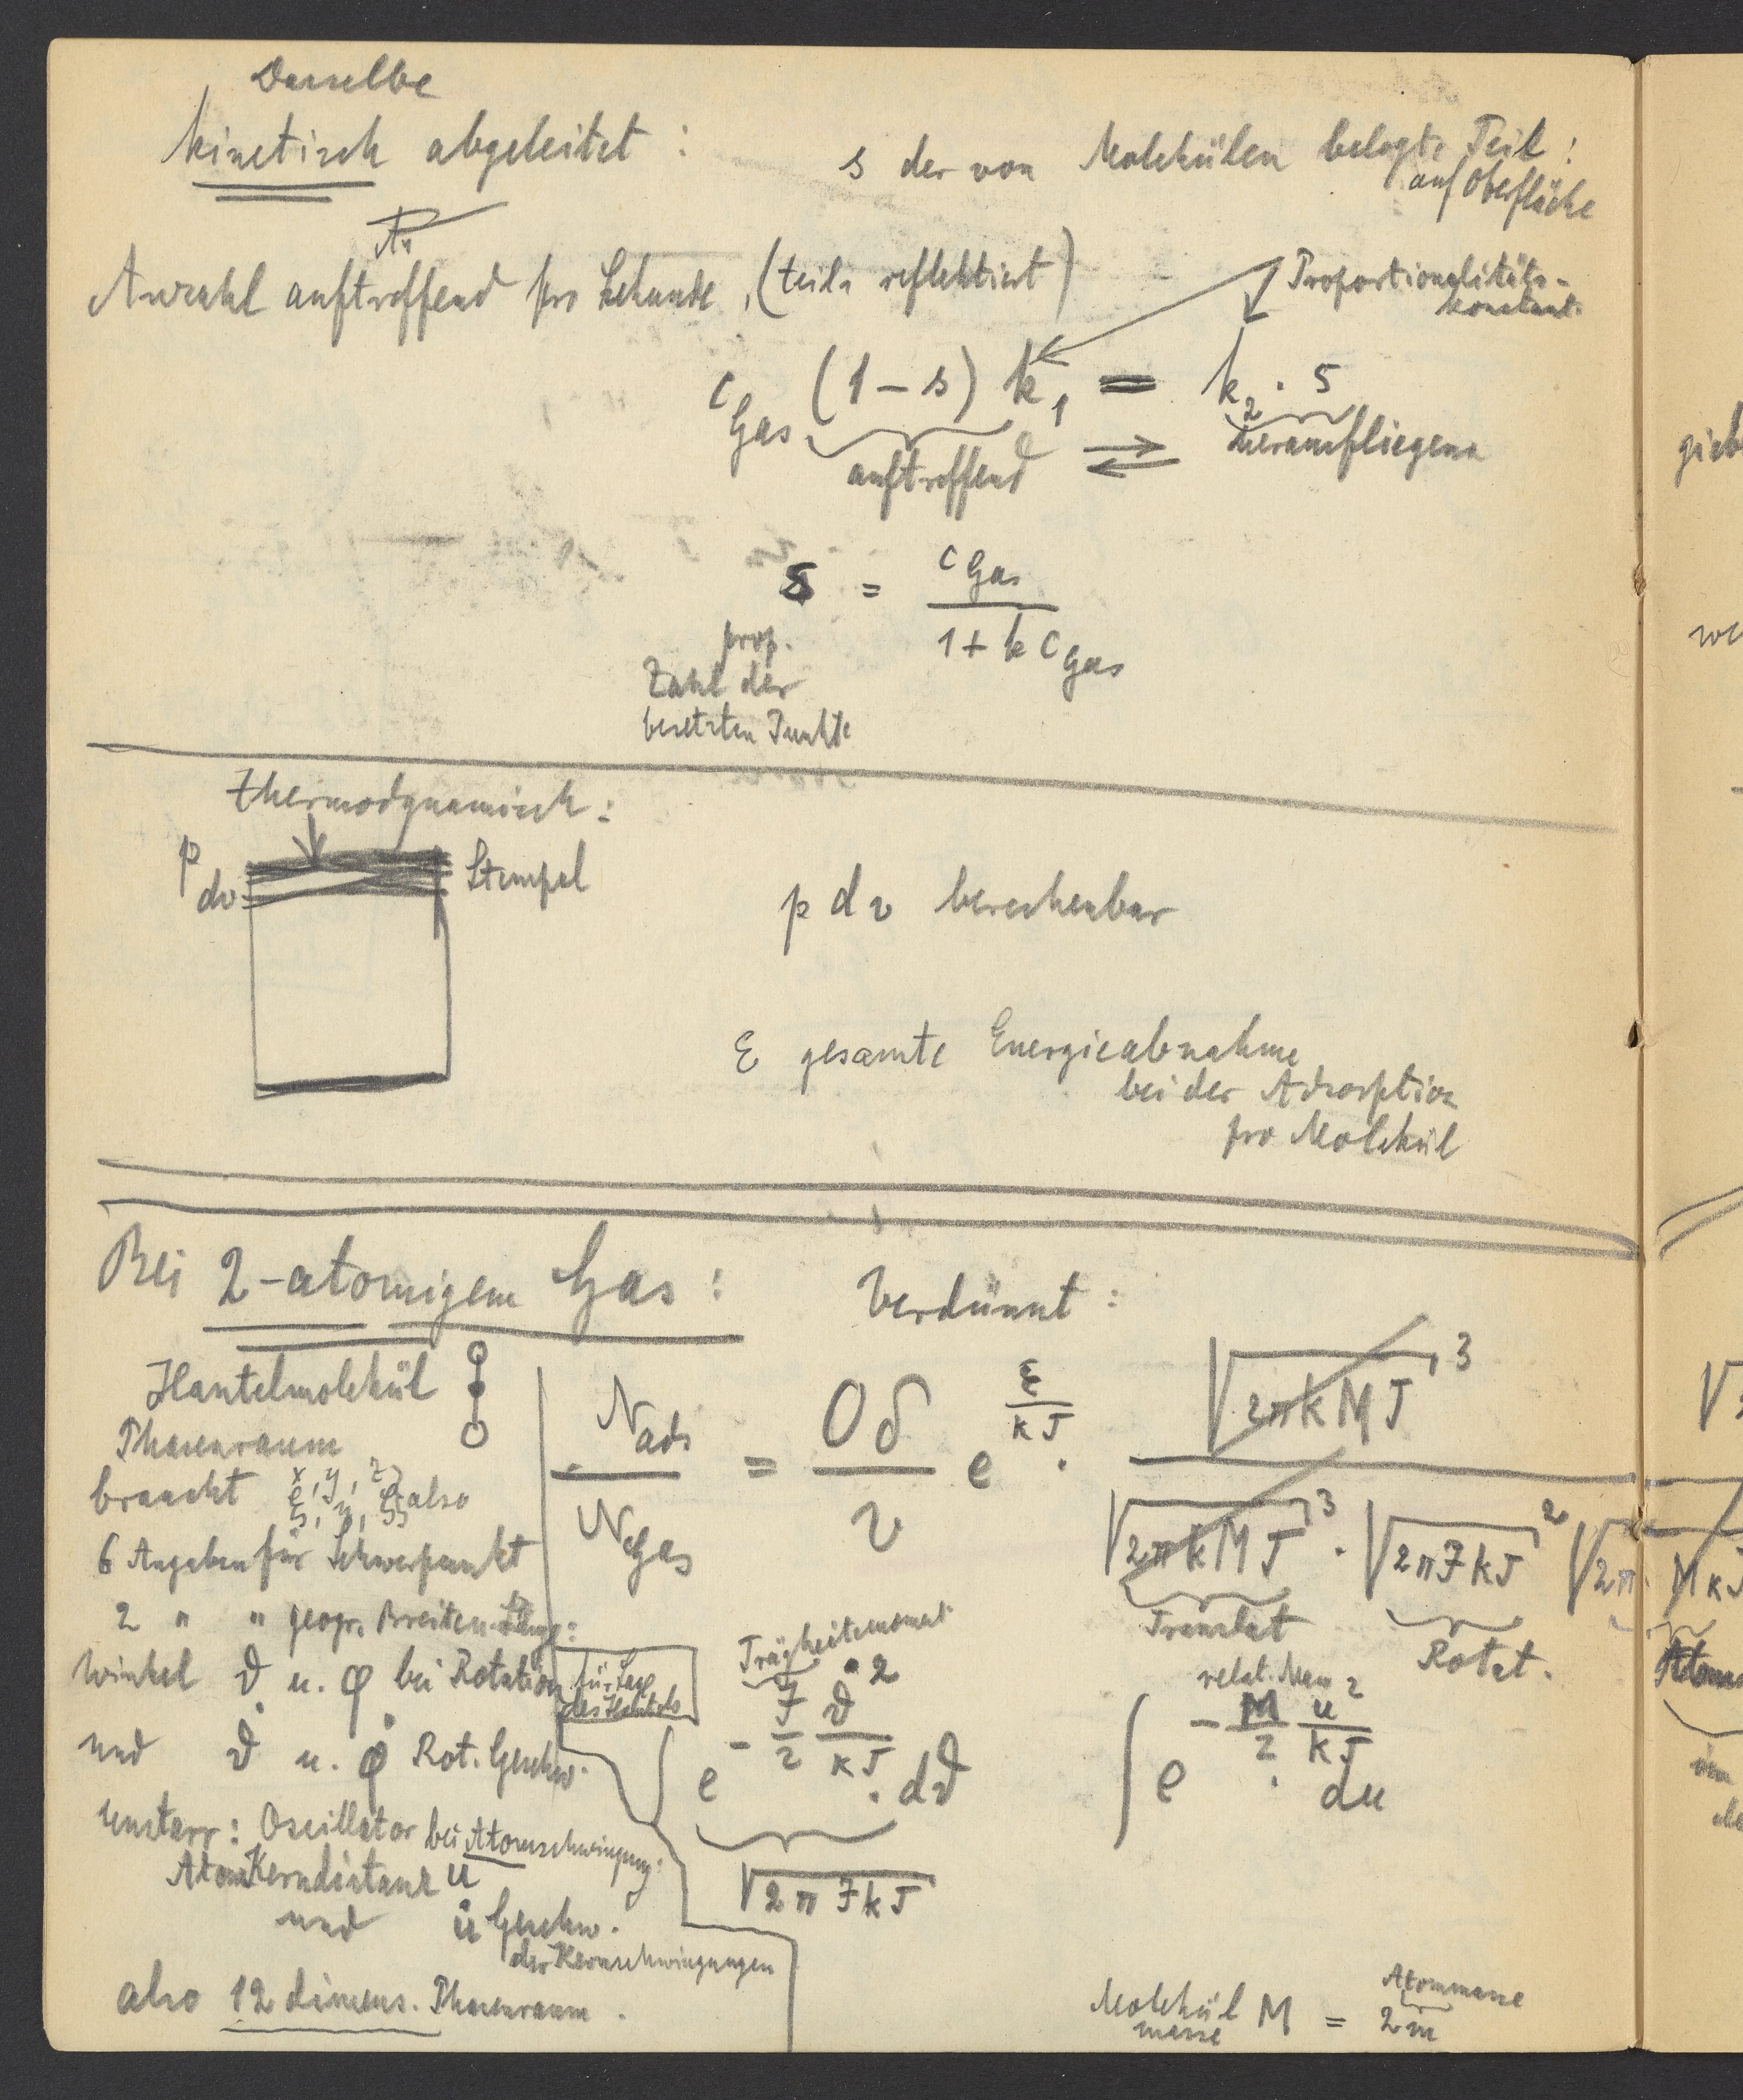 Dasselbe
kinetisch abgeleitet :
s der von Molekülen belegte Teil :
auf Oberfläche
Anzahl auftreffend pro Sekunde, (teils reflektiert)
Proportionalitäts-
konstant.
c Gas (1 - s) k₁ = k₂ · s
auftreffend ⇄ herausfliegend
s = c Gas / 1 + k c Gas
prop.
Zahl der
besetzten Punkte
thermodynamisch :
p
dv
Stempel
p dv berechenbar
ε gesamte Energieabnahme
bei der Adsorption
pro Molekül
Bei 2-atomigem Gas :
Verdünnt :
Hantelmolekül
Phasenraum
braucht x, y, z
ξ, η, ζ also
6 Angaben für Schwerpunkt
2 " " geogr. Breiten-Länge :
Winkel ϑ u. φ bei Rotation
für Lage
des Hantels
und ϑ̇ u. φ̇ Rot. Geschw.
unstarr : Oscillator bei Atomschwingung :
Kerndistanz u
und u̇ Geschw.
der Kernschwingungen
also 12 dimens. Phasenraum .
N ads / N Gas = Oδ / v e^(ε/kT) · √(2πkMT)³ / √(2πkMT)³ · √(2πJkT)² √2π
Translat
Rotat.
Trägheitsmoment
∫ e^(-J/2 ϑ̇²/kT) · dϑ̇
√(2πJkT)
∫ e^(-M/2 u²/kT) · du
Molekül M = 2m
masse
Atommasse